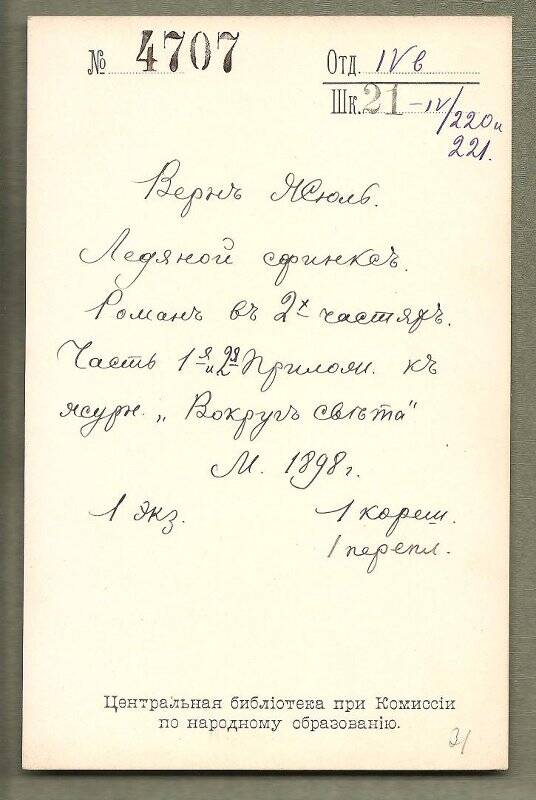 № 4707
Отд. IVв
Шк. 21-IV/220 и
221.
Вернъ Жюль.
Ледяной сфинксъ.
Романъ въ 2х частяхъ.
Часть 1я и 2я Прилож. къ
журн. „Вокругъ свѣта"
М. 1898 г.
1 экз. 1 кореш.
1 перепл.
Центральная библіотека при Комиссіи
по народному образованію.
31